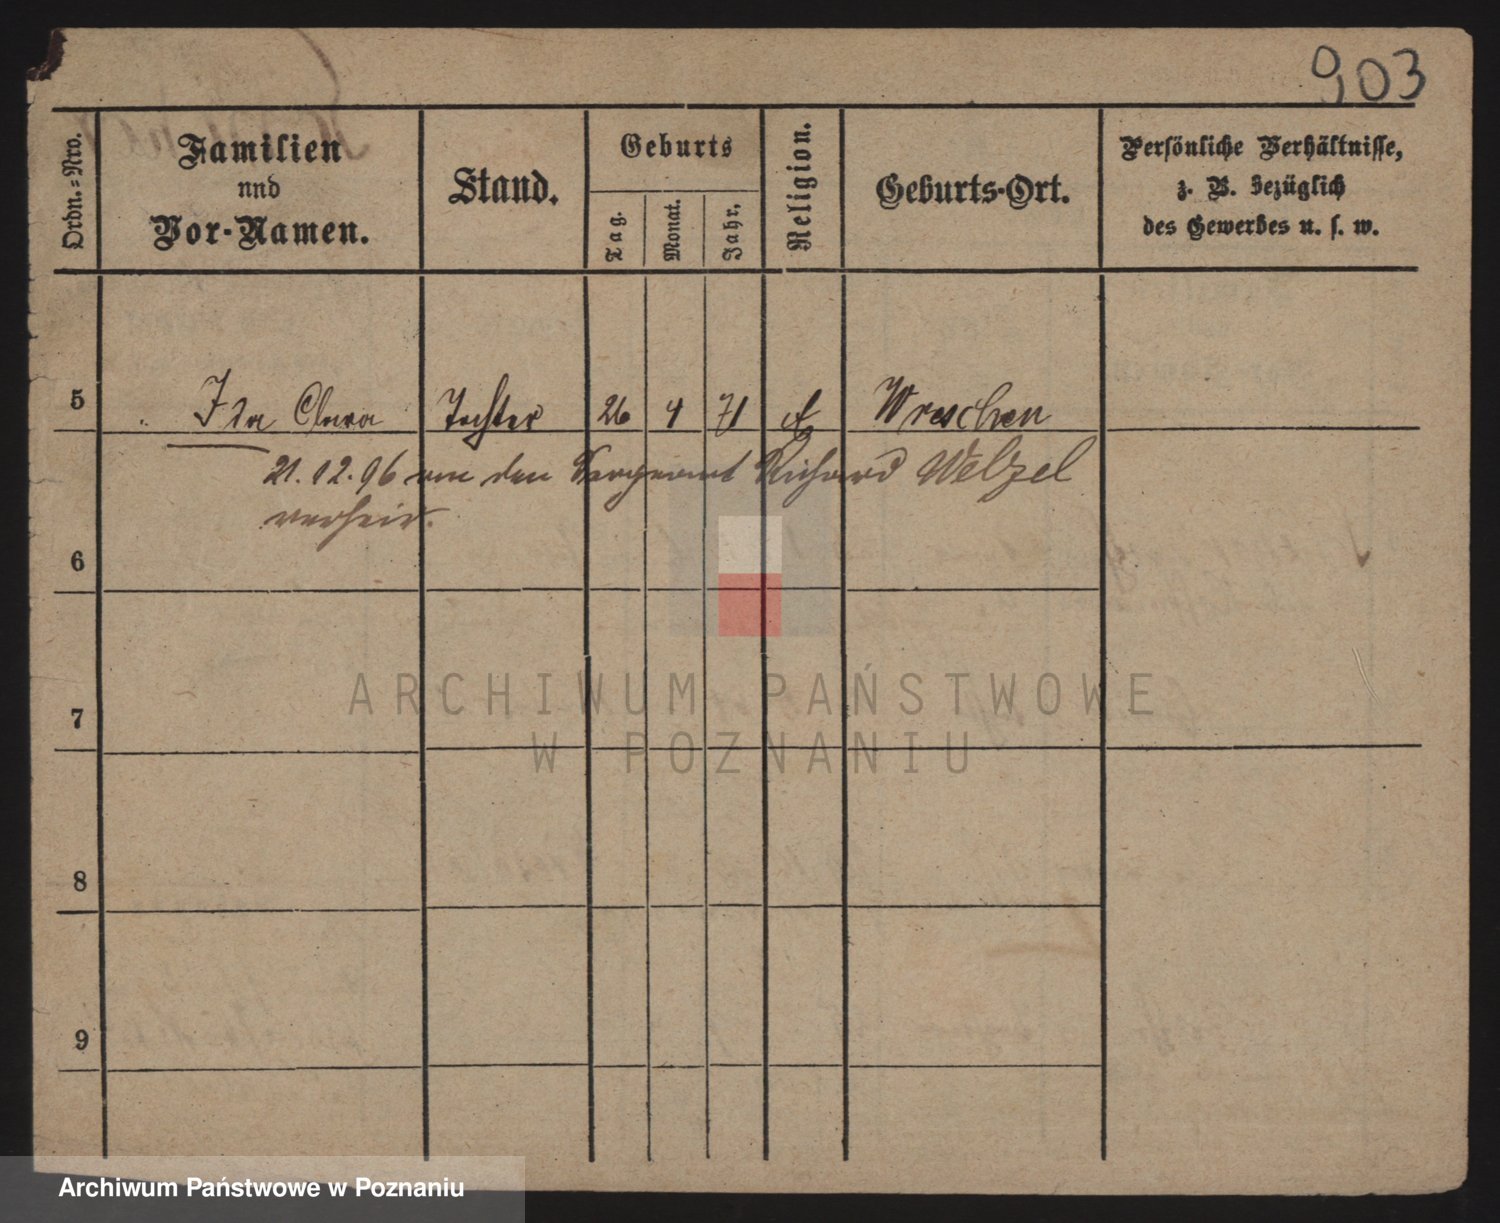 903
Ordn.=Nro.
Familien
und
Vor-Namen.
Stand.
Geburts
Tag.
Monat.
Jahr.
Religion.
Geburts-Ort.
Persönliche Verhältnisse,
z. B. bezüglich
des Gewerbes u. s. w.
5 Ida Clara Tochter 26 4 71 Wreschen
21.12.96 an den Sergeant Richard Welzel
verheir.
6
7
8
9
ARCHIWUM PAŃSTWOWE
W POZNANIU
Archiwum Państwowe w Poznaniu